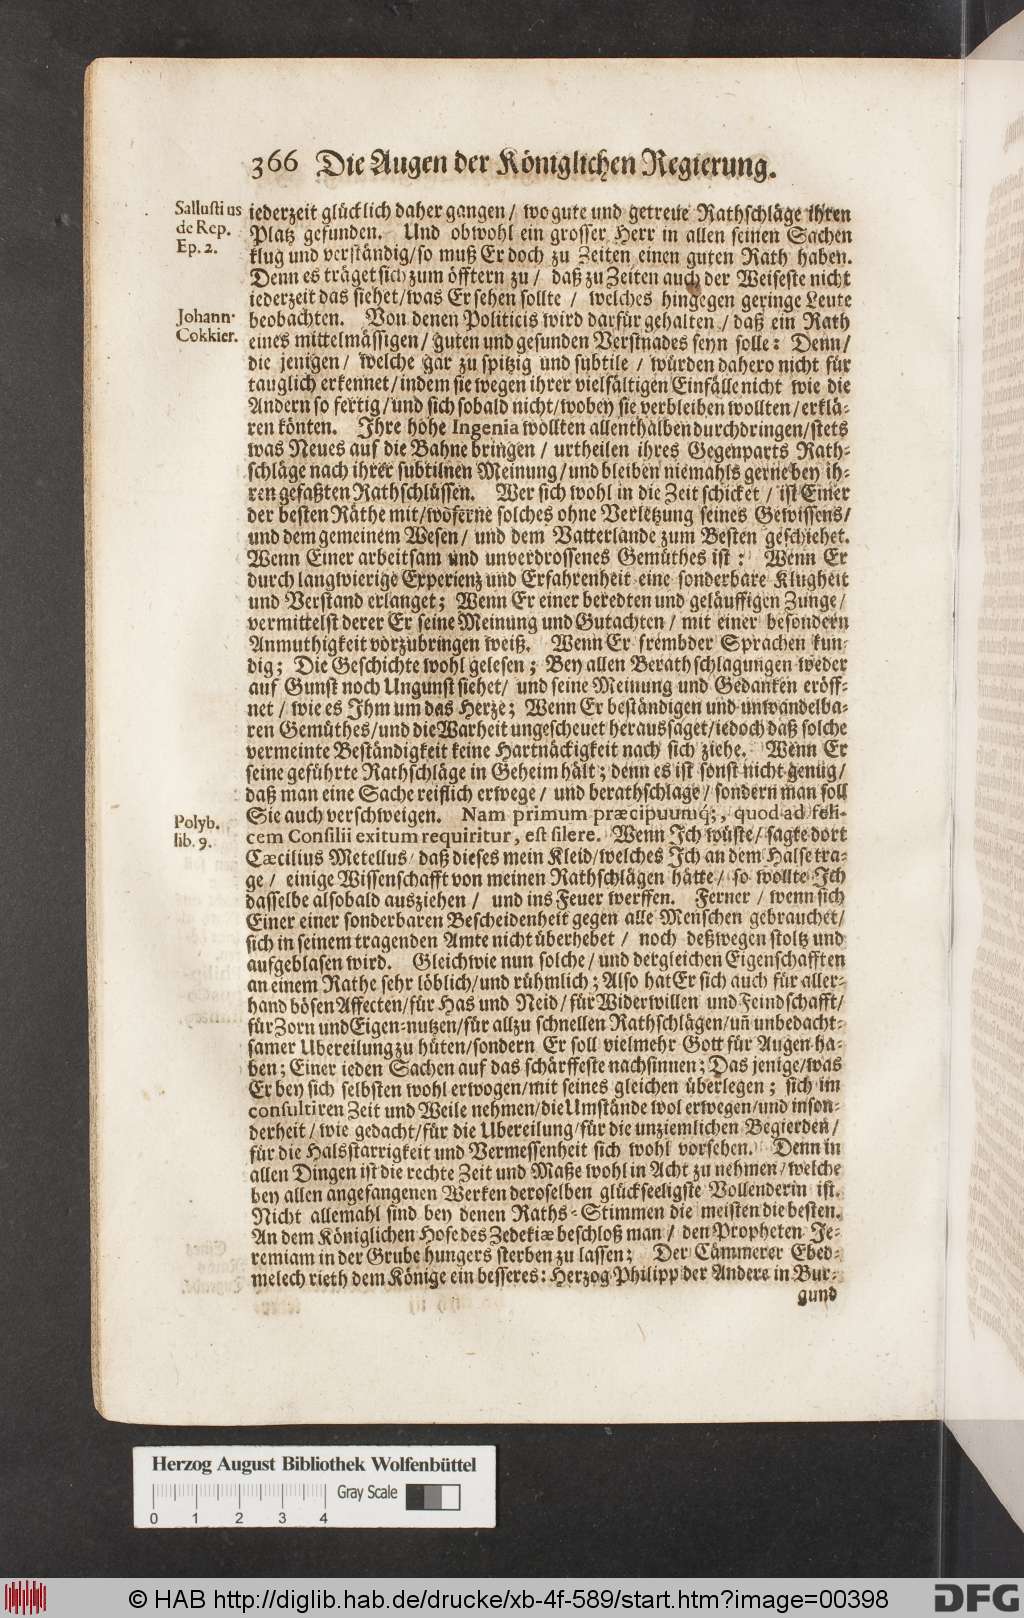 366 Die Augen der Königlichen Regierung.
Sallustius
de Rep.
Ep. 2.
Johann·
Cokkier.
Polyb.
lib. 9.
iederzeit glücklich daher gangen / wo gute und getreue Rathschläge ihren
Platz gefunden. Und obwohl ein grosser Herr in allen seinen Sachen
klug und verständig/so muß Er doch zu Zeiten einen guten Rath haben.
Denn es träget sich zum öfftern zu / daß zu Zeiten auch der Weiseste nicht
iederzeit das siehet/was Er sehen sollte / welches hingegen geringe Leute
beobachten. Von denen Politicis wird darfür gehalten / daß ein Rath
eines mittelmässigen / guten und gesunden Verstnades seyn solle: Denn/
die jenigen / welche gar zu spitzig und subtile / würden dahero nicht für
tauglich erkennet/indem sie wegen ihrer vielfältigen Einfälle nicht wie die
Andern so fertig/und sich sobald nicht/wobey sie verbleiben wollten/erklä-
ren könten. Ihre hohe Ingenia wollten allenthalben durchdringen/stets
was Neues auf die Bahne bringen / urtheilen ihres Gegenparts Rath-
schläge nach ihrer subtilnen Meinung/und bleiben niemahls gerne bey ih-
ren gefaßten Rathschlüssen. Wer sich wohl in die Zeit schicket / ist Einer
der besten Räthe mit/woferne solches ohne Verletzung seines Gewissens/
und dem gemeinem Wesen/ und dem Vatterlande zum Besten geschiehet.
Wenn Einer arbeitsam und unverdrossenes Gemüthes ist: Wenn Er
durch langwierige Experienz und Erfahrenheit eine sonderbare Klugheit
und Verstand erlanget; Wenn Er einer beredten und geläuffigen Zunge/
vermittelst derer Er seine Meinung und Gutachten / mit einer besondern
Anmuthigkeit vorzubringen weiß. Wenn Er frembder Sprachen kun-
dig; Die Geschichte wohl gelesen; Bey allen Berathschlagungen weder
auf Gunst noch Ungunst siehet/ und seine Meinung und Gedanken eröff-
net / wie es Ihm um das Herze; Wenn Er beständigen und unwandelba-
ren Gemüthes/und die Warheit ungescheuet heraussaget/iedoch daß solche
vermeinte Beständigkeit keine Hartnäckigkeit nach sich ziehe. Wenn Er
seine geführte Rathschläge in Geheim hält; denn es ist sonst nicht genug/
daß man eine Sache reiflich erwege / und berathschlage / sondern man soll
Sie auch verschweigen. Nam primum præcipuumq́;, quod ad feli-
cem Consilii exitum requiritur, est silere. Wenn Ich wüste/ sagte dort
Cæcilius Metellus/ daß dieses mein Kleid/welches Ich an dem Halse tra-
ge / einige Wissenschafft von meinen Rathschlägen hätte / so wollte Ich
dasselbe alsobald ausziehen / und ins Feuer werffen. Ferner / wenn sich
Einer einer sonderbaren Bescheidenheit gegen alle Menschen gebrauchet/
sich in seinem tragenden Amte nicht überhebet / noch deßwegen stoltz und
aufgeblasen wird. Gleichwie nun solche / und dergleichen Eigenschafften
an einem Rathe sehr löblich/und rühmlich; Also hat Er sich auch für aller-
hand bösen Affecten/für Has und Neid/für Widerwillen und Feindschafft/
für Zorn und Eigen-nutzen/für allzu schnellen Rathschlägen/un̄ unbedacht-
samer Ubereilung zu hüten/sondern Er soll vielmehr Gott für Augen ha-
ben; Einer ieden Sachen auf das schärffeste nachsinnen; Das jenige/was
Er bey sich selbsten wohl erwogen/mit seines gleichen überlegen; sich im
consultiren Zeit und Weile nehmen/die Umstände wol erwegen/und inson-
derheit / wie gedacht/für die Ubereilung/für die unziemlichen Begierden/
für die Halsstarrigkeit und Vermessenheit sich wohl vorsehen. Denn in
allen Dingen ist die rechte Zeit und Maße wohl in Acht zu nehmen/welche
bey allen angefangenen Werken deroselben glückseeligste Vollenderin ist.
Nicht allemahl sind bey denen Raths-Stimmen die meisten die besten.
An dem Königlichen Hofe des Zedekiæ beschloß man / den Propheten Je-
remiam in der Grube hungers sterben zu lassen; Der Cämmerer Ebed-
melech rieth dem Könige ein besseres: Herzog Philipp der Andere in Bur-
gund
Herzog August Bibliothek Wolfenbüttel
Gray Scale
0 1 2 3 4
© HAB http://diglib.hab.de/drucke/xb-4f-589/start.htm?image=00398
DFG